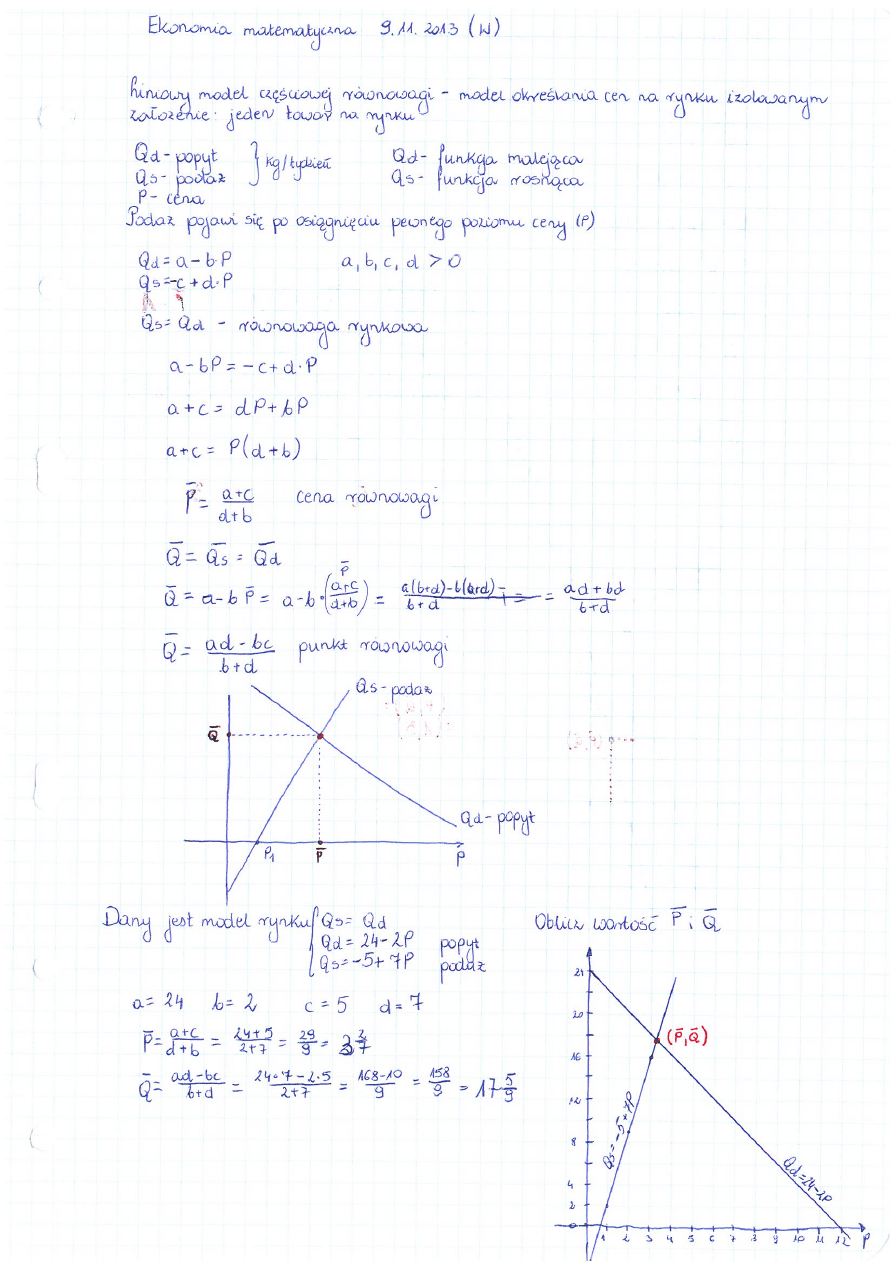 Ekonomia matematyczna 9.11.2013 (W)
Liniowy model częściowej równowagi - model określania cen na rynku izolowanym
założenie: jeden towar na rynku
Qd - popyt } kg/tydzień Qd - funkcja malejąca
Qs - podaż Qs - funkcja rosnąca
P - cena
Podaż pojawi się po osiągnięciu pewnego poziomu ceny (P)
Qd = a - b·P a, b, c, d > 0
Qs = -c + d·P
Qs = Qd - równowaga rynkowa
a - bP = -c + d·P
a + c = dP + bP
a + c = P(d + b)
P̄ = (a+c)/(d+b) cena równowagi
Q̄ = Q̄s = Q̄d
P̄
Q̄ = a - b P̄ = a - b·((a+c)/(d+b)) = = (ad + bd)/(b+d)
Q̄ = (ad - bc)/(b+d) punkt równowagi
Qs - podaż
Q̄
Qd - popyt
P1 P̄ P
Dany jest model rynku { Qs = Qd Oblicz wartość P̄ i Q̄
Qd = 24 - 2P popyt
Qs = -5 + 7P podaż
a = 24 b = 2 c = 5 d = 7
P̄ = (a+c)/(d+b) = (24+5)/(2+7) = 29/9 = 3 2/7
Q̄ = (ad-bc)/(b+d) = (24·7 - 2·5)/(2+7) = (168-10)/9 = 158/9 = 17 5/9
24
20
(P̄, Q̄)
16
12
8
4
2
0
Qs = -5 + 7P
Qd = 24 - 2P
1 2 3 4 5 6 7 8 9 10 11 12 P